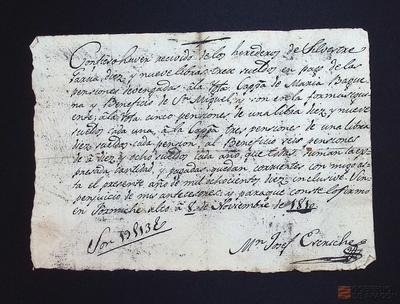 Confieso haver recivido de los herederos de Silvestre
Garcia, diez y nueve libras, trece sueldos en pago de las
pensiones devengadas à la Capp.ª de Maria Baque
na y Beneficio de S.n Miguel; y son en la forma sigui
ente, à la cinco pensiones de una libra diez y nueve
sueldos cada una, à la Capp.ª tres pensiones de una libra
diez sueldos cada pension, al Beneficio seis pensiones
de à diez y ocho sueldos cada año, que todas suman la ex
presada cantidad, y pagadas quedan corrientes con mugo as
ta el presente año de mil ochocientos diez inclusive. Sin
perjuicio de mis antecesores; y para que conste lo firmo
en Formiche alto à 8 de Noviembre de 1810
Son 19 L 13 s
M.n Josef